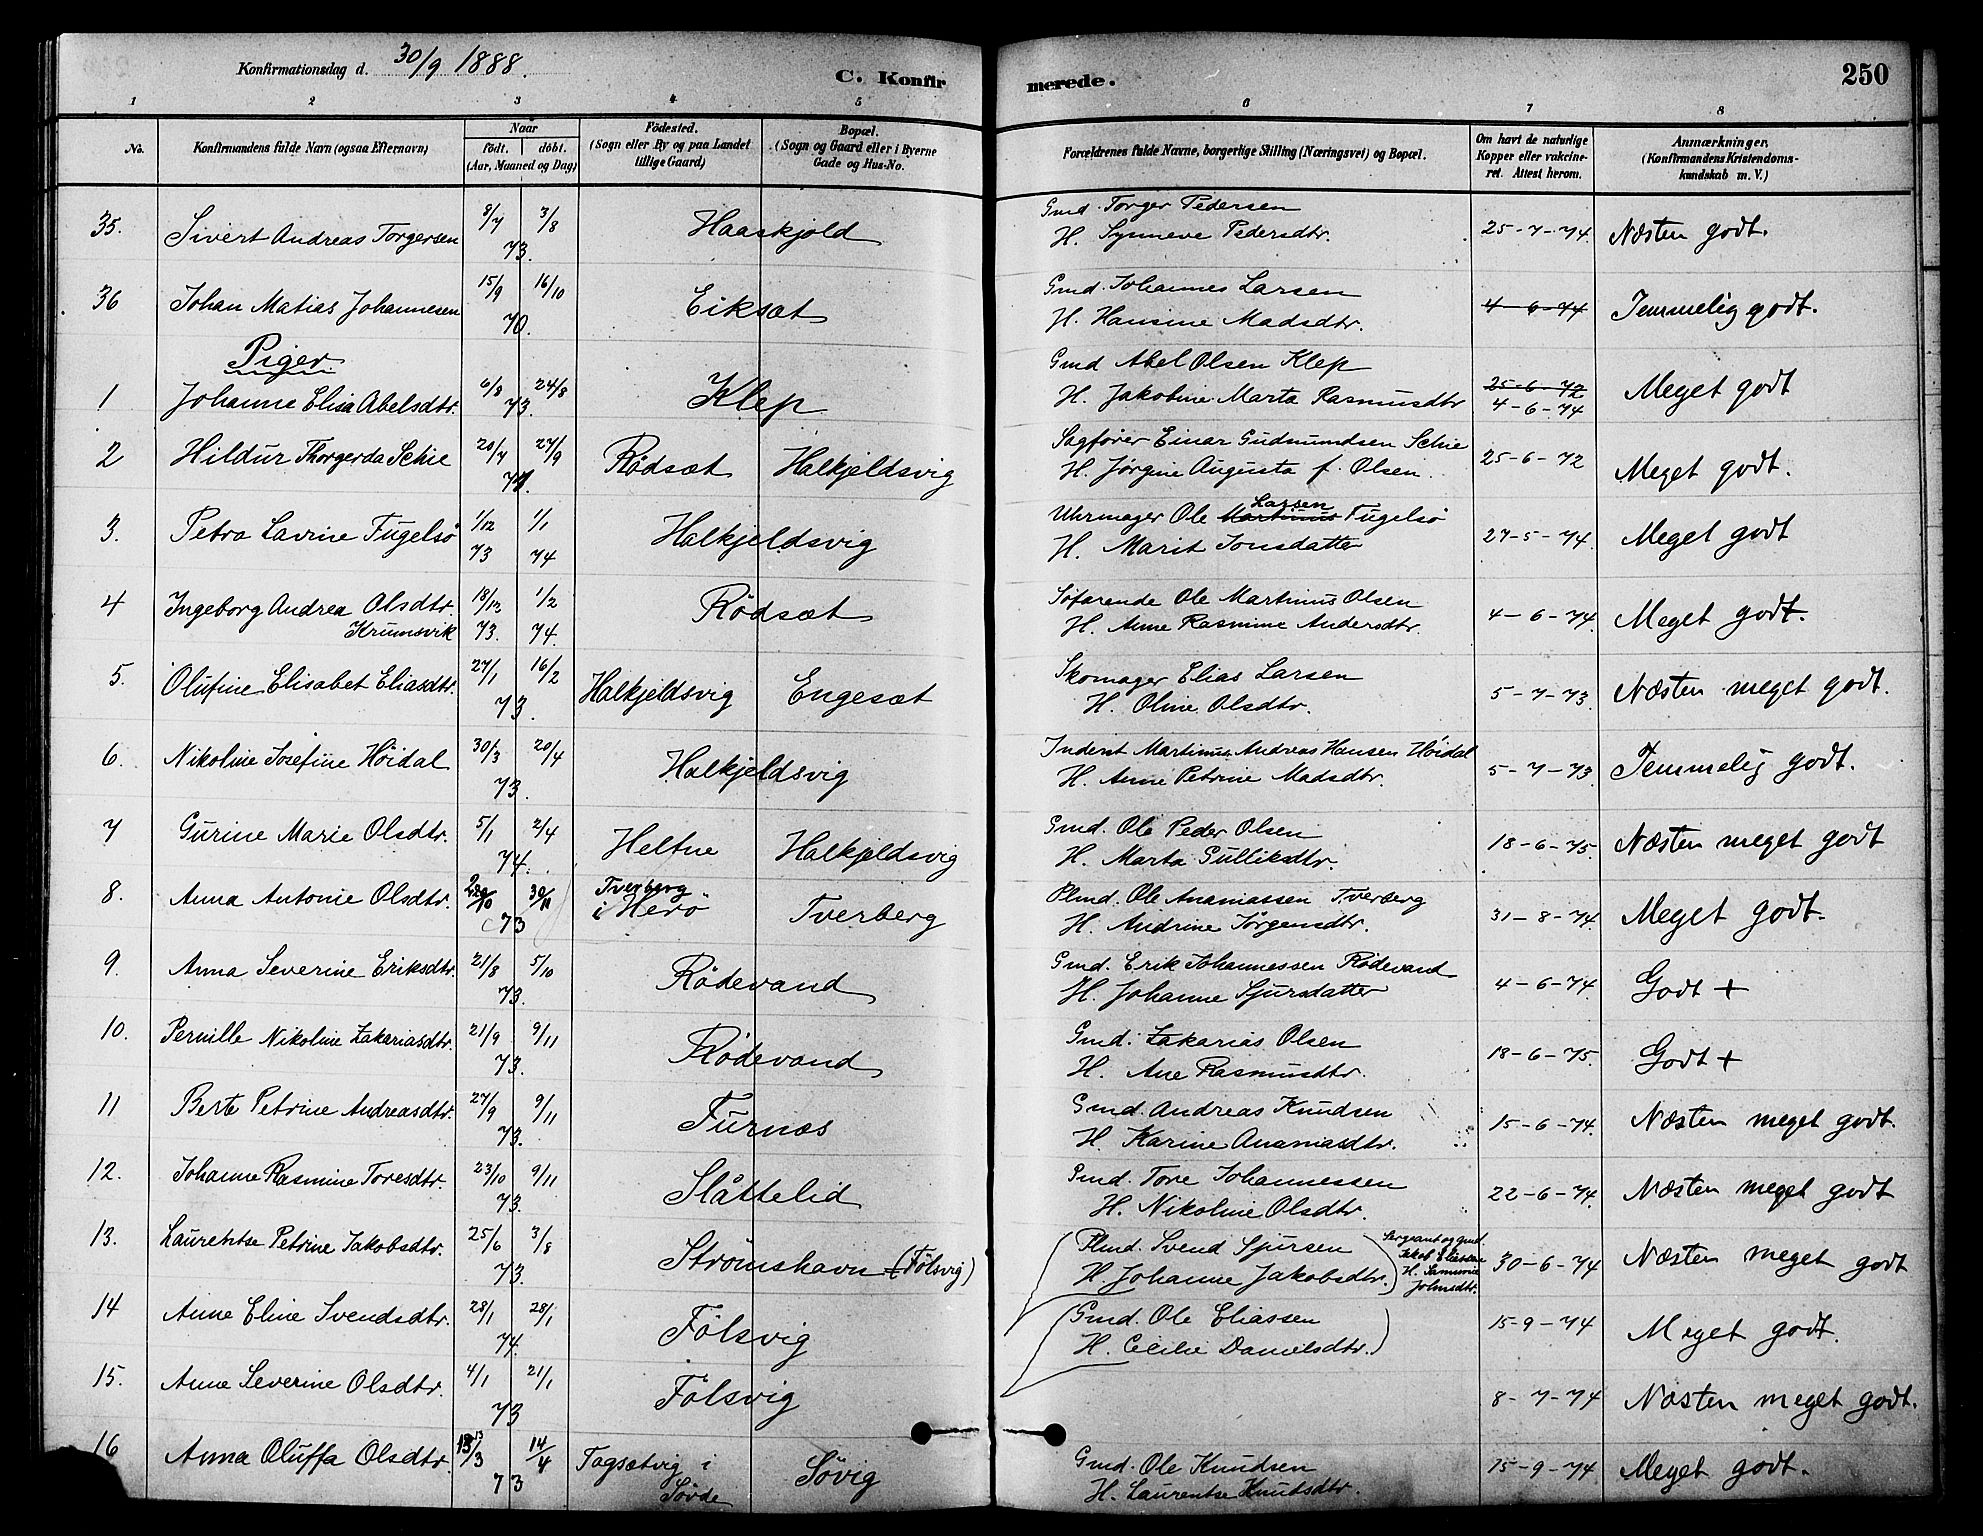 Konfirmationsdag d. 30/9 1888.
C. Konfirmerede.
250
1 2 3 4 5 6 7 8
No. Konfirmandens fulde Navn (ogsaa Efternavn) Naar født. døbt. (Aar, Maaned og Dag) Fødested. (Sogn eller By og paa Landet tillige Gaard) Bopæl. (Sogn og Gaard eller i Byerne Gade og Hus-No. Forældrenes fulde Navne, borgerlige Stilling (Næringsvei) og Bopæl. Om havt de naturlige Kopper eller vakcineret. Attest herom. Anmærkninger. (Konfirmandens Kristendomskundskab m. V.)
35. Sivert Andreas Torgersen 8/7 3/8 73. Haaskjold Gmd. Torger Pedersen
H. Synneve Pedersdtr. 25-7-74. Næsten godt.
36 Johan Matias Johannesen 15/9 16/10 70. Eiksæt Gmd. Johannes Larsen
H. Hansine Madsdtr. 4-6-74 Temmelig godt.
Piger
1 Johanne Elisa Abelsdtr. 6/8 24/8 73. Klep Gmd Abel Olsen Klep
H. Jakobine Marta Rasmusdtr 25-6-72 4-6-74 Meget godt
2 Hildur Thorgerda Schie 20/7 27/9 Rødsæt Halkjeldsvig Sagfører Einar Gudmundsen Schie
H. Jørgine Augusta f. Olsen. 25-6-72 Meget godt.
3. Petra Lavine Fugelsø 1/12 73 1/1 74 Halkjeldsvig Uhrmager Ole Martinus Larsen Fugelsø
H. Marit Jonsdatter 27-5-74. Meget godt
4 Ingeborg Andrea Olsdtr. Krumsvik 18/12 73. 1/2 74. Rødsæt Søfarende Ole Martinus Olsen
H. Anne Rasmine Andersdtr. 4-6-74. Meget godt.
5. Olufine Elisabet Eliasdtr. 27/1 16/2 73. Halkjeldsvig Engesæt Skomager Elias Larsen
H. Oline Olsdtr. 5-7-73. Næsten meget godt.
6. Nikoline Josefine Høidal 30/3 20/4 73. Halkjeldsvig Inderst Martinus Andreas Hansen Høidal
H. Anne Petrine Madsdtr. 5-7-73. Temmelig godt.
7 Gurine Marie Olsdtr. 5/1 2/4 74. Heltne Halkjeldsvig Gmd. Ole Peder Olsen
H. Marta Gulliksdtr. 18-6-75. Næsten meget godt
8. Anna Antonie Olsdtr. 30/11 73 Tverberg i Herø Tverberg Plmd. Ole Ananiassen Tverberg
H. Andrine Jørgensdtr. 31-8-74. Meget godt.
9. Anna Severine Eriksdtr. 21/8 5/10 73. Rødevand Gmd. Erik Johannessen Rødevand
H. Johanne Sjursdatter 4-6-74. Godt +
10. Pernille Nikoline Zakariasdtr. 21/9 9/11 73. Rødevand Gmd. Zakarias Olsen
H. Ane Rasmusdtr. 18-6-75. Godt +
11 Berte Petrine Andreasdtr. 27/9 9/11 73. Furnæs Gmd. Andreas Knudsen
H. Karine Ananiasdtr. 15-6-74. Næsten meget godt.
12. Johanne Rasmine Toresdtr. 23/10 9/11 73. Slåttelid Gmd. Tore Johannessen
H. Nikoline Olsdtr. 22-6-74. Næsten meget godt
13. Laurentse Petrine Jakobsdtr. 25/6 3/8 73. Strømshavn (Følsvig) (Plmd. Svend Sjursen
H. Johanne Jakobsdtr.) Sergeant og Gmd. Jakob Eliassen H. Johnsdtr. 30-6-74 Næsten meget godt
14 Anne Eline Svendsdtr. 28/1 28/1 74. Følsvig (Gmd. Ole Eliassen
H. Cecilie Danielsdtr.) 15-9-74 Meget godt.
15. Anne Severine Olsdtr. 4/1 21/1 73 Følsvig 8-7-74 Næsten meget godt.
16 Anna Oluffa Olsdtr. 13/3 14/4 73 Tagsætvig i Søvde Søvig Gmd. Ole Knudsen
H. Laurentse Knutsdtr. 15-9-74 Meget godt.